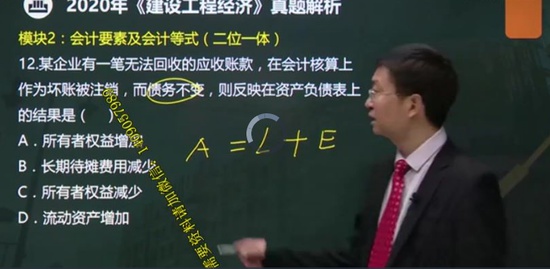 2020年《建设工程经济》真题解析
模块2：会计要素及会计等式（二位一体）
12.某企业有一笔无法回收的应收账款，在会计核算上
作为坏账被注销，而债务不变，则反映在资产负债表上
的结果是（ ）
A．所有者权益增加
B．长期待摊费用减少
C．所有者权益减少
D．流动资产增加
A = L + E
需要资料请加微信